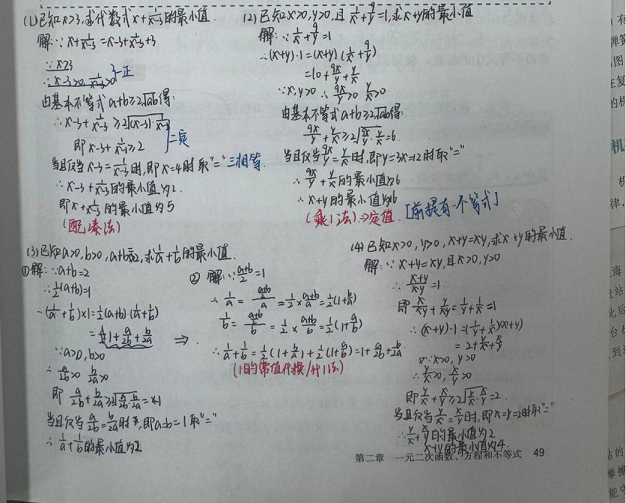 (1)已知x>3,求代数式x+1/(x-3)的最小值.
解:∵x+1/(x-3)=x-3+1/(x-3)+3
∵x>3
∴x-3>0,1/(x-3)>0 一正
由基本不等式a+b≥2√ab得:
∴x-3+1/(x-3)≥2√((x-3)·1/(x-3))
即x-3+1/(x-3)≥2 二定
当且仅当x-3=1/(x-3)时,即x=4时取"=" 三相等.
∴x-3+1/(x-3)的最小值为2.
即x+1/(x-3)的最小值为5
(配凑法)
(2)已知x>0,y>0,且1/x+9/y=1,求x+y的最小值
解:∵1/x+9/y=1
∴(x+y)·1=(x+y)(1/x+9/y)
=10+9x/y+y/x
∵x,y>0 ∴9x/y>0 y/x>0
由基本不等式a+b≥2√ab得:
9x/y+y/x≥2√(9x/y·y/x)=6
当且仅当9x/y=y/x时,即y=3x=12时取"="
∴9x/y+y/x的最小值为6
∴x+y的最小值为16
(乘1法)⇒定值. [前提有一个等式]
(3)已知a>0,b>0,a+b=2,求1/a+1/b的最小值.
①解:∵a+b=2
∴1/2(a+b)=1
∴(1/a+1/b)×1=1/2(a+b)(1/a+1/b)
=1+a/2b+b/2a ⇒
∵a>0,b>0
∴a/2b>0 b/2a>0
即a/2b+b/2a≥2√(a/2b·b/2a)=1
当且仅当a/2b=b/2a时,即a=b=1取"="
∴1/a+1/b的最小值为2
②解:∵(a+b)/2=1
∴1/a=((a+b)/2)/a=1/2×(a+b)/a=1/2(1+b/a)
1/b=((a+b)/2)/b=1/2×(a+b)/b=1/2(1+a/b)
∴1/a+1/b=1/2(1+b/a)+1/2(1+a/b)=1+a/2b+b/2a
(1的常值代换/付1法)
(4)已知x>0,y>0,x+y=xy,求x+y的最小值.
解:∵x+y=xy,且x>0,y>0
∴(x+y)/xy=1
即x/xy+y/xy=1/y+1/x=1
∴(x+y)·1=(1/y+1/x)(x+y)
=2+x/y+y/x
∵x>0,y>0
∴y/x>0,x/y>0
即y/x+x/y≥2√(y/x·x/y)=2
当且仅当y/x=x/y时,即x=y=2时取"="
∴y/x+x/y的最小值为2
x+y的最小值为4.
第二章 一元二次函数、方程和不等式 49